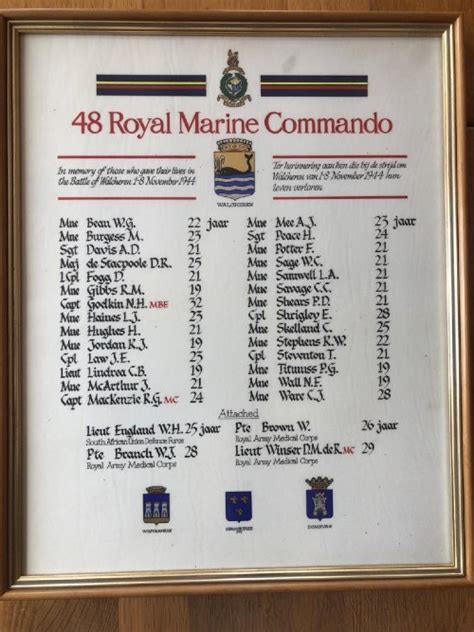 48 Royal Marine Commando
In memory of those who gave their lives in
the Battle of Walcheren 1-8 November 1944
Ter herinnering aan hen die bij de strijd om
Walcheren van 1-8 November 1944 hun
leven verloren.
WALCHEREN
Mne Beau W.G. 22 jaar
Mne Burgess M. 23
Sgt Davis A.D. 21
Maj de Stacpoole D.R. 25
LCpl Fogg D. 21
Mne Gibbs R.M. 19
Capt Godkin N.H. MBE 32
Mne Haines L.J. 23
Mne Hughes H. 21
Mne Jordan K.J. 19
Cpl Law J.E. 23
Lieut Lindrea C.B. 19
Mne McArthur J. 21
Capt MacKenzie R.G. MC 24
Mne Mee A.J. 23 jaar
Sgt Peace H. 24
Mne Potter F. 21
Mne Sage W.C. 21
Mne Samwell L.A. 21
Mne Savage C.C. 21
Mne Shears P.D. 21
Cpl Shrigley E. 28
Mne Skelland C. 25
Mne Stephens K.W. 22
Cpl Steventon T. 21
Mne Titmuss P.G. 19
Mne Wall N.F. 19
Mne Ware C.J. 28
Attached
Lieut England W.H. 25 jaar
South African Union Defence Force
Pte Branch W.J. 28
Royal Army Medical Corps
Pte Brown W. 26 jaar
Royal Army Medical Corps
Lieut Winser D.M. de R. MC 29
Royal Army Medical Corps
WESTKAPELLE
DOMBURG